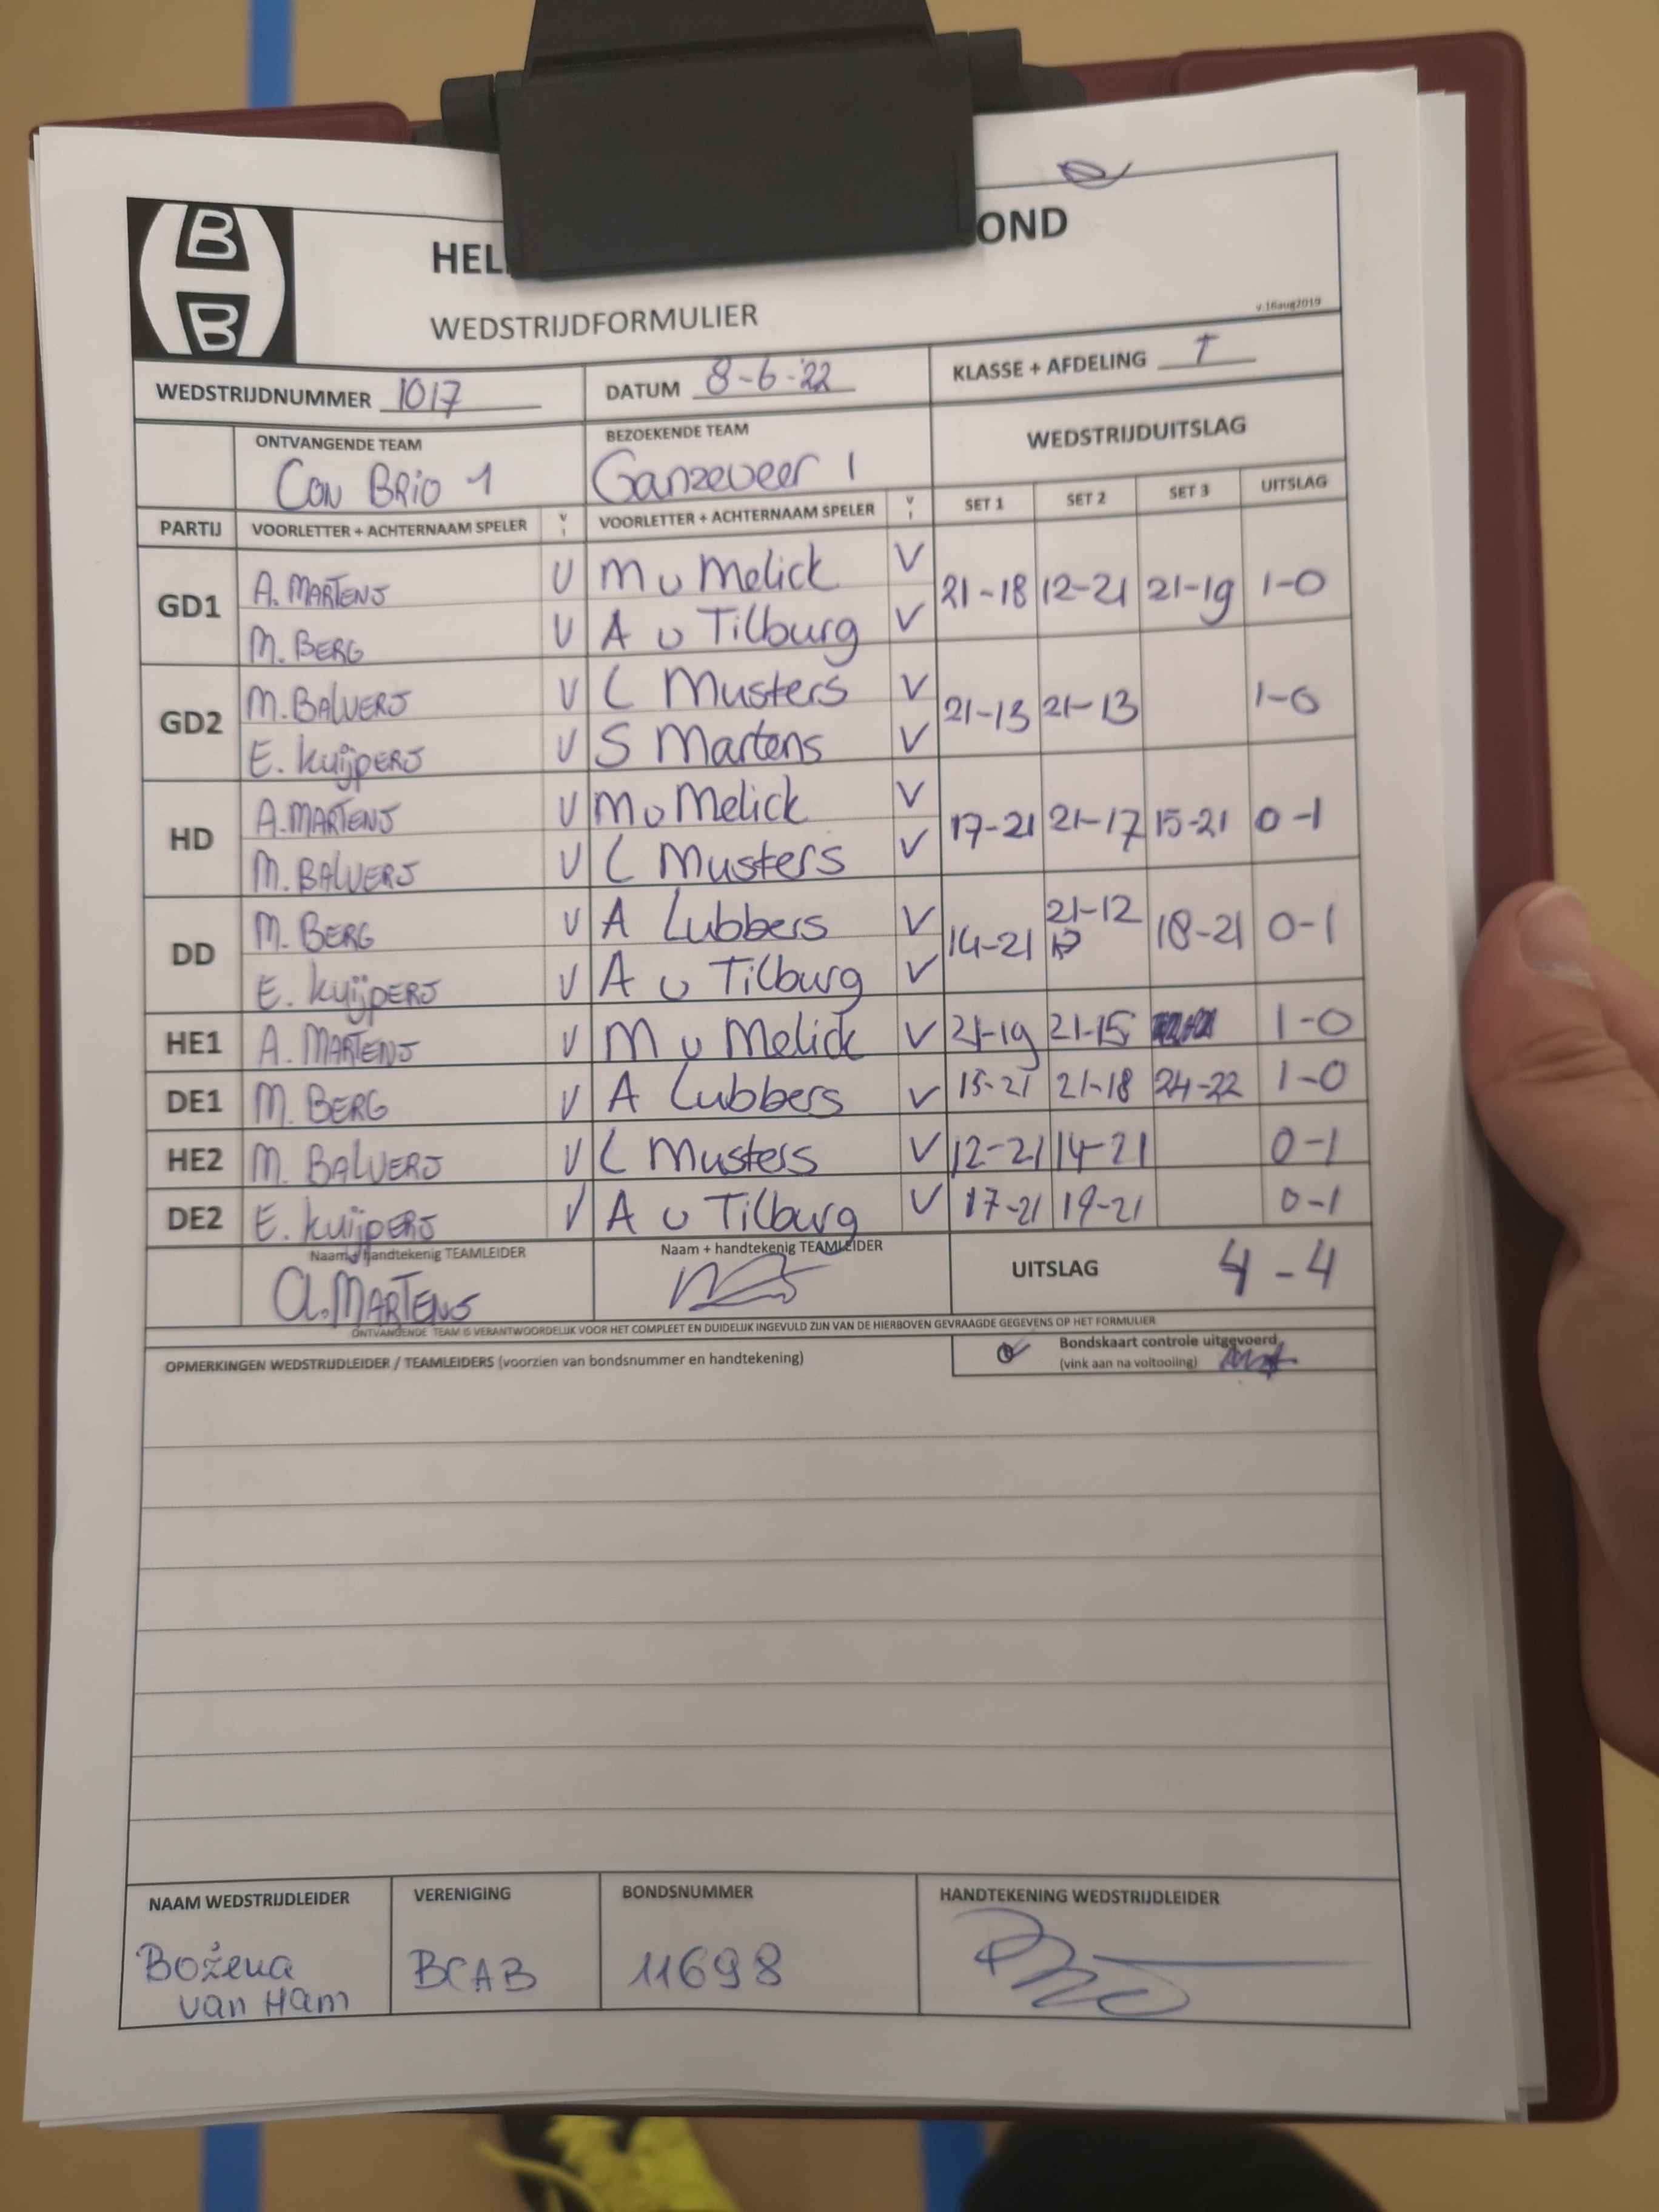 B
B
HEL OND
WEDSTRIJDFORMULIER
v.16aug2019
WEDSTRIJDNUMMER 1017 DATUM 8-6-'22 KLASSE + AFDELING T
ONTVANGENDE TEAM BEZOEKENDE TEAM WEDSTRIJDUITSLAG
CON BRIO 1 Ganzeveer 1
PARTIJ VOORLETTER + ACHTERNAAM SPELER V I VOORLETTER + ACHTERNAAM SPELER V I SET 1 SET 2 SET 3 UITSLAG
GD1 A. MARTENS V M v Melick V 21-18 12-21 21-19 1-0
M. BERG V A v Tilburg V
GD2 M. BALVERS V C Musters V 21-13 21-13 1-0
E. Kuijpers V S Martens V
HD A. MARTENS V M v Melick V 17-21 21-17 15-21 0-1
M. BALVERS V C Musters V
DD M. BERG V A Lubbers V 14-21 21-12 18-21 0-1
E. Kuijpers V A v Tilburg V
HE1 A. MARTENS V M v Melick V 21-19 21-15 1-0
DE1 M. BERG V A Lubbers V 15-21 21-18 24-22 1-0
HE2 M. BALVERS V C Musters V 12-21 14-21 0-1
DE2 E. Kuijpers V A v Tilburg V 17-21 19-21 0-1
Naam + handtekenig TEAMLEIDER Naam + handtekenig TEAMLEIDER UITSLAG 4-4
A. MARTENS
ONTVANGENDE TEAM IS VERANTWOORDELIJK VOOR HET COMPLEET EN DUIDELIJK INGEVULD ZIJN VAN DE HIERBOVEN GEVRAAGDE GEGEVENS OP HET FORMULIER
OPMERKINGEN WEDSTRIJDLEIDER / TEAMLEIDERS (voorzien van bondsnummer en handtekening) Bondskaart controle uitgevoerd
(vink aan na voltooiing)
NAAM WEDSTRIJDLEIDER VERENIGING BONDSNUMMER HANDTEKENING WEDSTRIJDLEIDER
Bożena BCAB 11698
van Ham